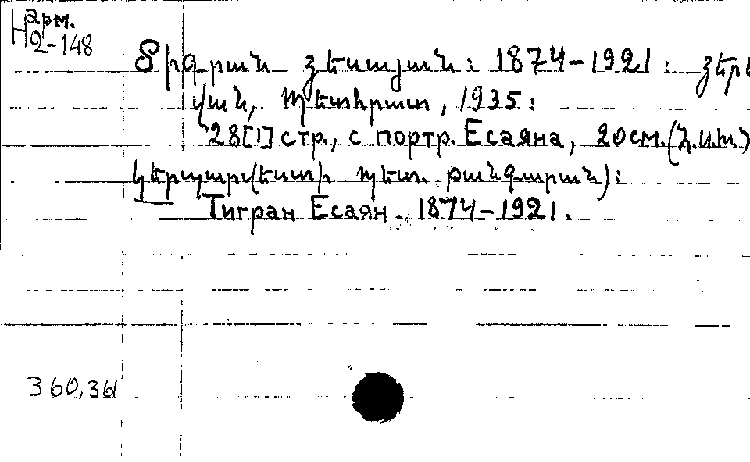 арм.
Н2-148
Տիգրան Յեսայան: 1874-1921: Յերե
վան, Պետհրատ, 1935:
28[1] стр., с портр. Есаяна, 20см. (Հ.Ս.Խ.Հ
կերպարվեստի պետ. թանգարան):
Тигран Есаян. 1874-1921.
360,36